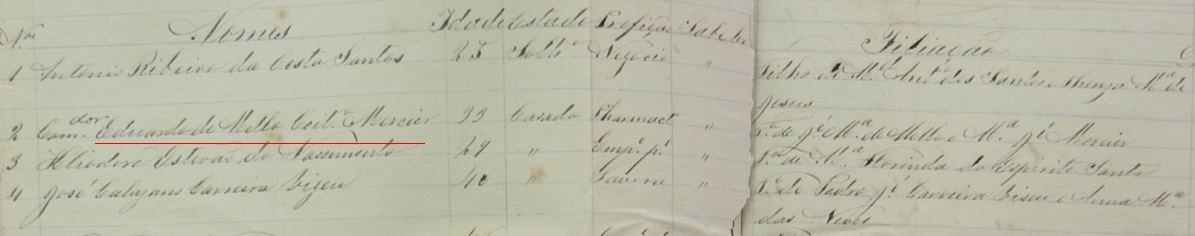 Nos Nomes Idade Estado Profição Sabe ler Filiação
1 Antonio Ribeiro da Costa Santos 25 Soltº Negocio " Filho de Mel Antº dos Santos e Thereza Mª de
Jesus
2 Comdor Eduardo de Mello Coitº Mercier 33 Casado Pharmact " Fº de Jé Mª de Mello e Mª Jé Mercier
3 Heliodoro Estevas do Nascimento 29 " Empº pº " Fº de Mª Florinda do Espirito Santo
4 José Calazans Carreira Vizeu 40 " Lavora " Fº de Pedro Jé Carreira Viseu e Anna Mª
das Neves